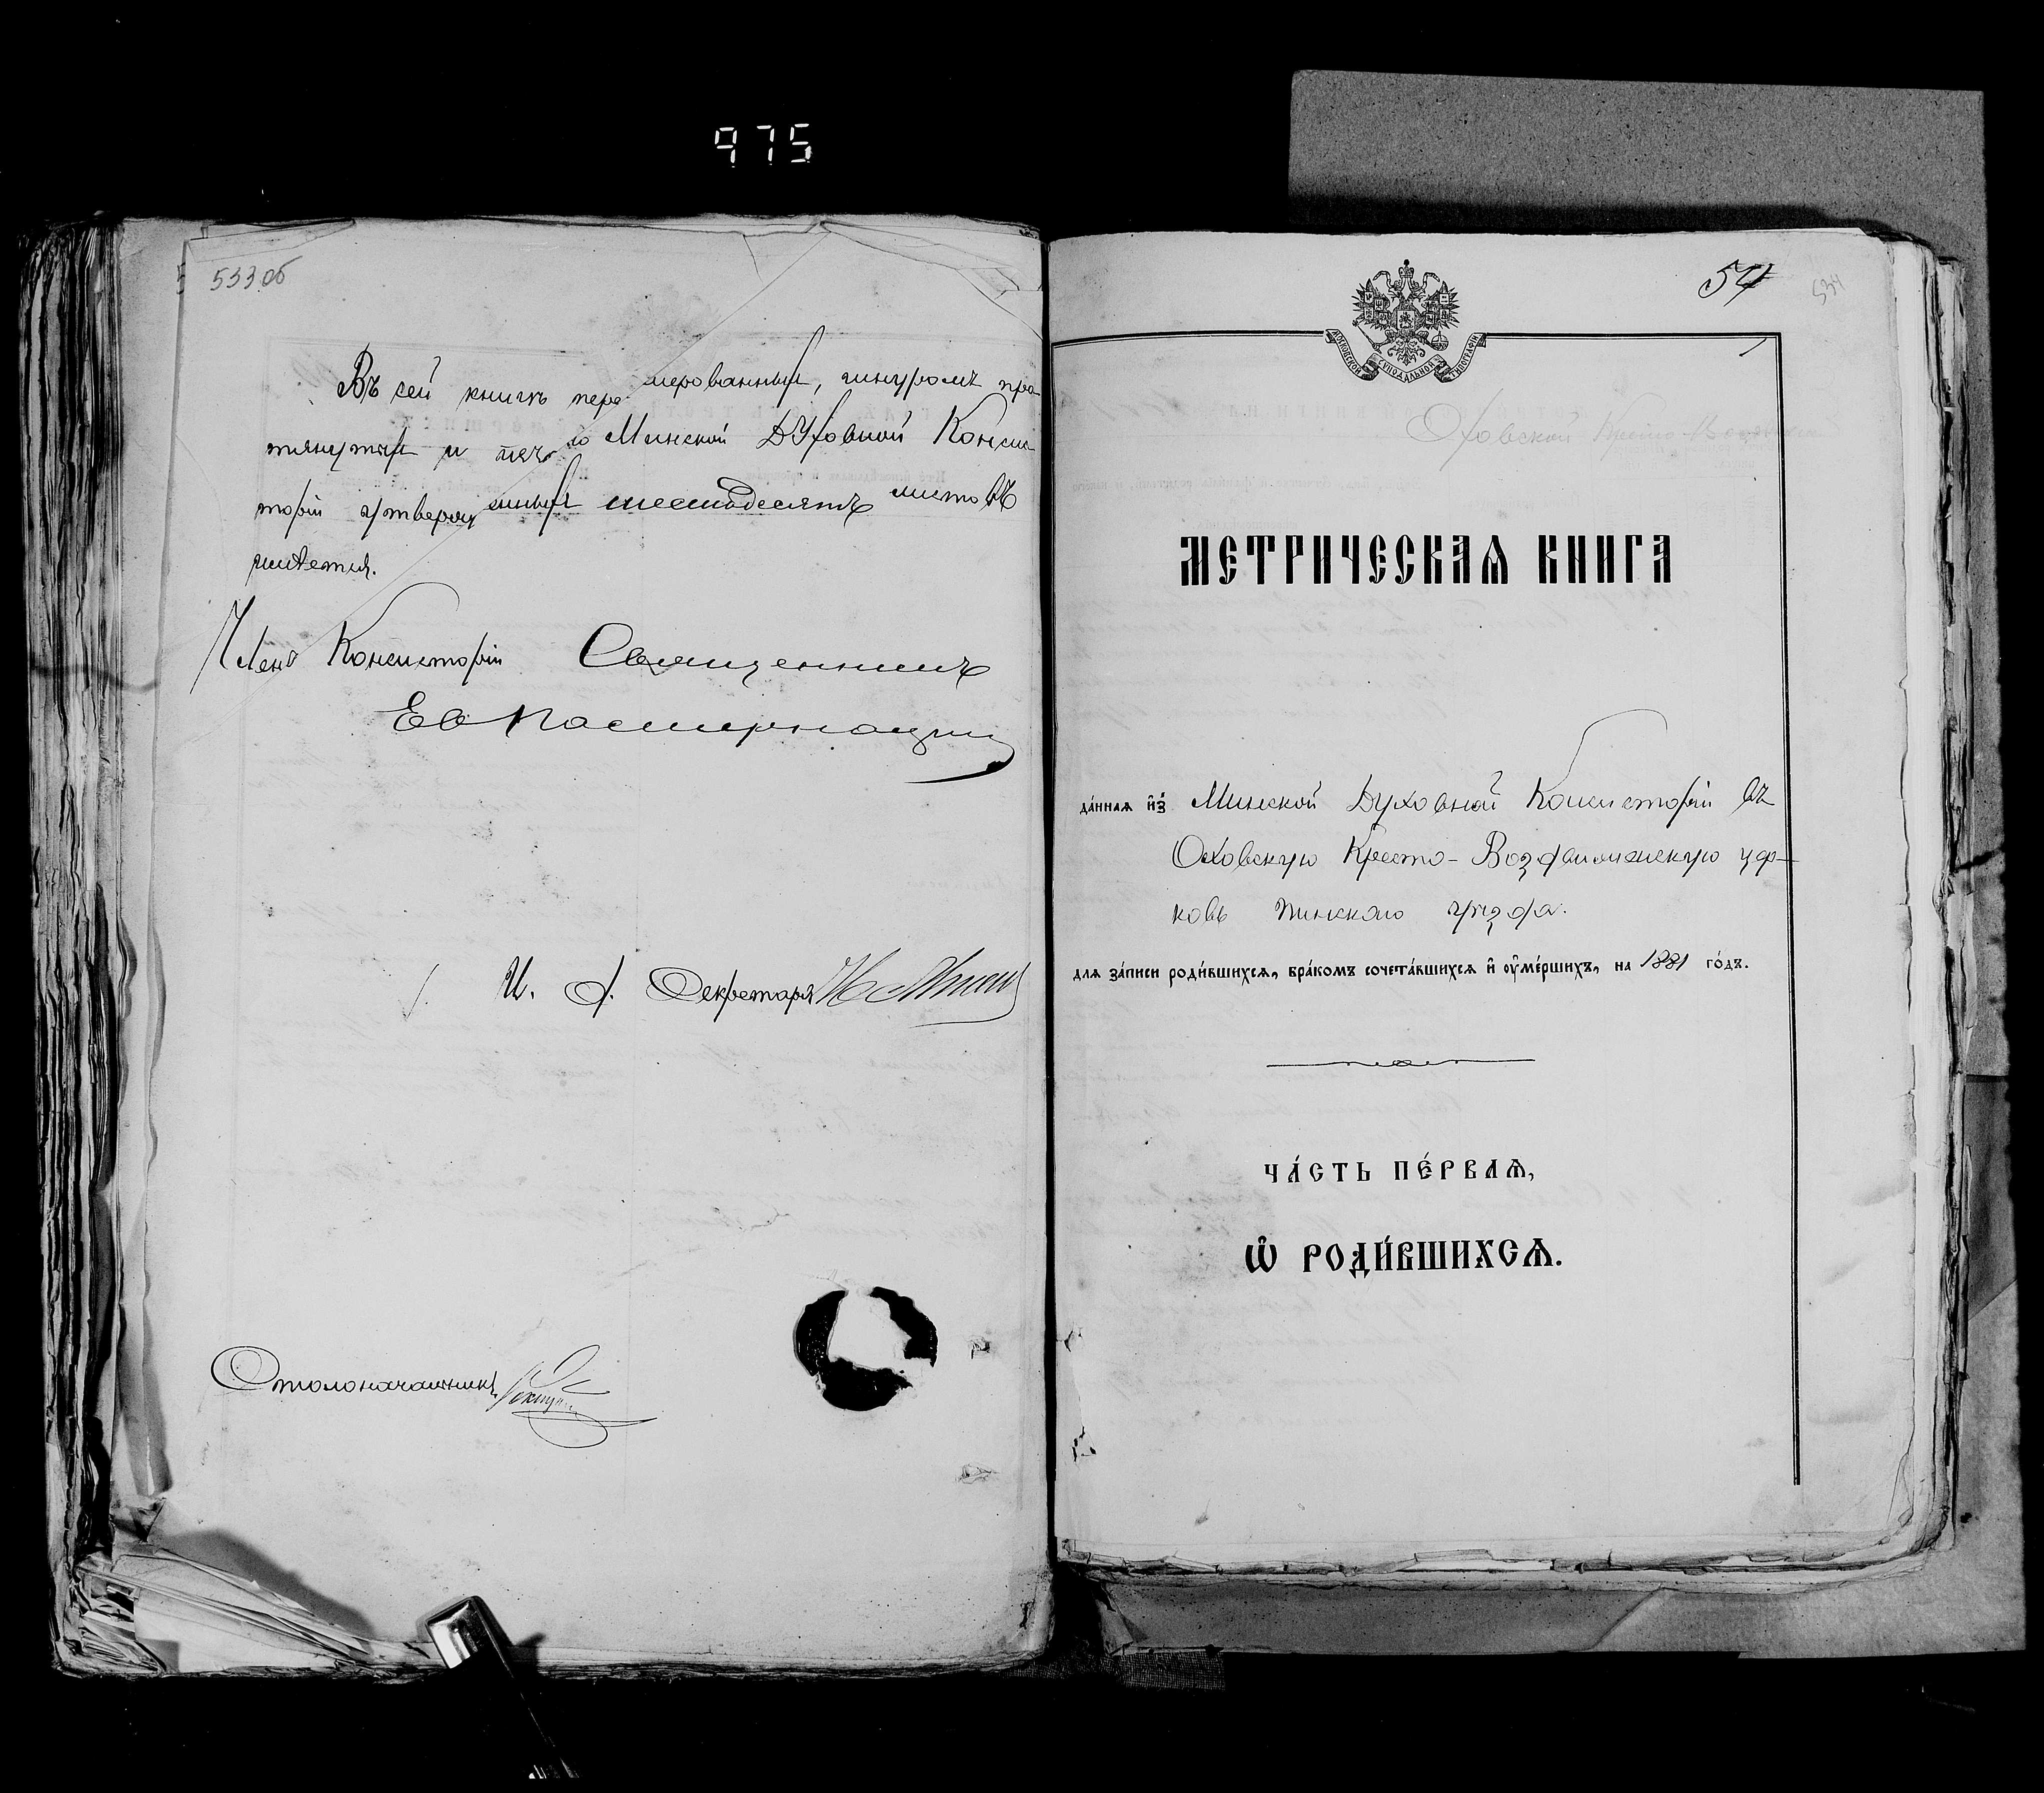 975
533 об
Въ сей книгѣ пере мерованныхъ, шнуромъ про-
тянутыхъ и печ ю Минской Духовной Консис-
торіи утверж енныхъ шестьдесятъ листовъ
числится.
Членъ Консисторіи Священникъ
И. д. Секретаря
Столоначальникъ
54
534
МОСКОВСКОЙ СѴНОДАЛЬНОЙ ТИПОГРАФІИ
1
Оховской Кресто-
МЕТРИЧЕСКАѦ КНИГА
да́ннаѧ и҆з̾ Минской Духовной Консисторіи въ
Оховскую Кресто-Воздвиженскую цер-
ковь Пинскаго уѣзда.
для за́писи роди́вшихсѧ, бра́комъ сочета́вшихсѧ и҆ ᲂу҆ме́ршихъ, на 1881 го́дъ.
ЧА́СТЬ ПЕ́РВАѦ,
Ѽ РОДИ́ВШИХСѦ.